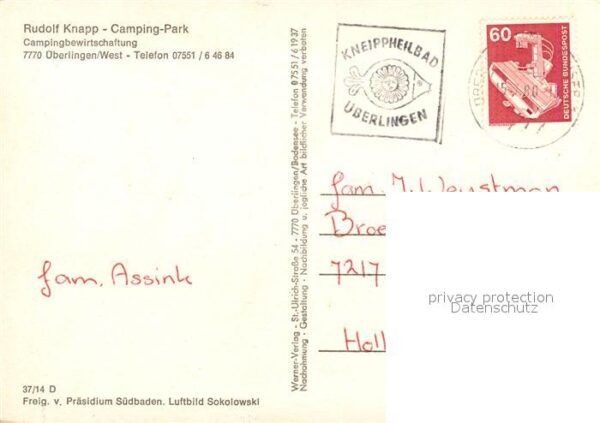 Rudolf Knapp - Camping-Park
Campingbewirtschaftung
7770 Überlingen/West - Telefon 07551 / 6 46 84
KNEIPPHEILBAD
ÜBERLINGEN
60
DEUTSCHE BUNDESPOST
Werner-Verlag - St.-Ulrich-Straße 54 - 7770 Überlingen/Bodensee - Telefon 0 75 51/6 19 37
Nachahmung - Gestaltung - Nachbildung u. jegliche Art bildlicher Verwendung verboten
fam.
Broe
7217
Holl
fam. Assink
privacy protection
Datenschutz
37/14 D
Freig. v. Präsidium Südbaden. Luftbild Sokolowski